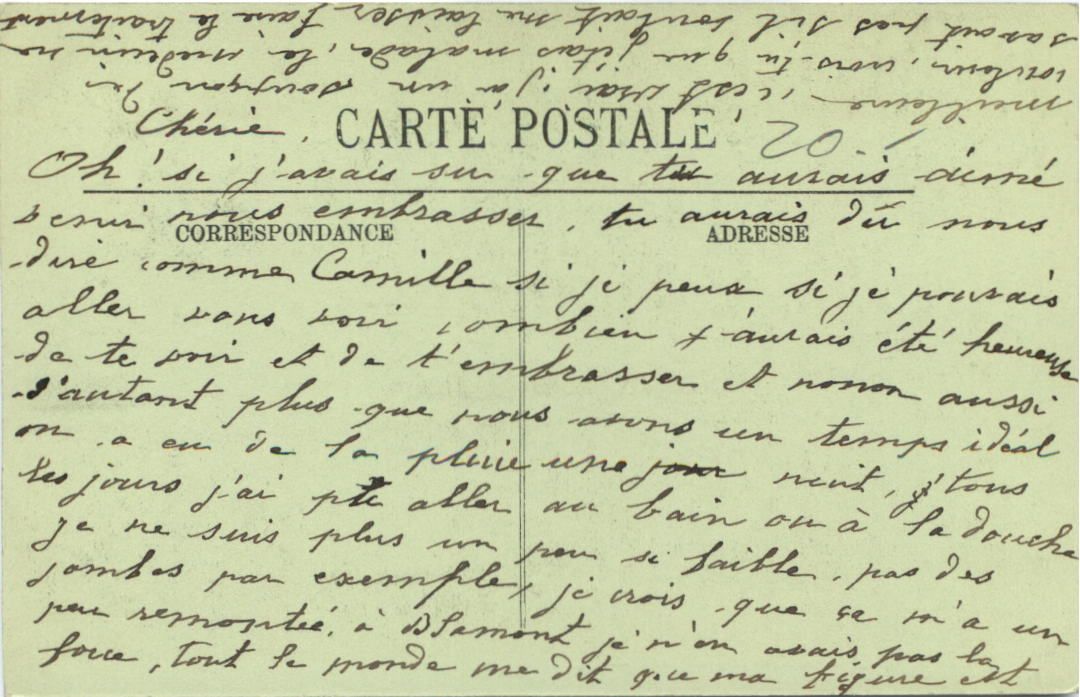 Chérie,
CARTE POSTALE
20.-
Oh! si j'avais su que tu aurais aimé
venir nous embrasser, tu aurais dû nous
CORRESPONDANCE
ADRESSE
dire comme Camille si je peux si je pouvais
aller vous voir combien j'aurais été heureuse
de te voir et de t'embrasser et nonon aussi
d'autant plus que nous avons un temps idéal
on a eu de la pluie une nuit, tous
les jours j'ai pu aller au bain ou à la douche
je ne suis plus un peu si faible, pas des
jambes par exemple, je crois que ça m'a un
peu remontée, à Blamont je n'en avais pas la
force, tout le monde me dit que ma figure est
meilleure, c'est vrai, j'ai un soupçon de
couleur, crois-tu que j'étais malade, le médecin ne
savait pas s'il voulait me laisser faire le traitement